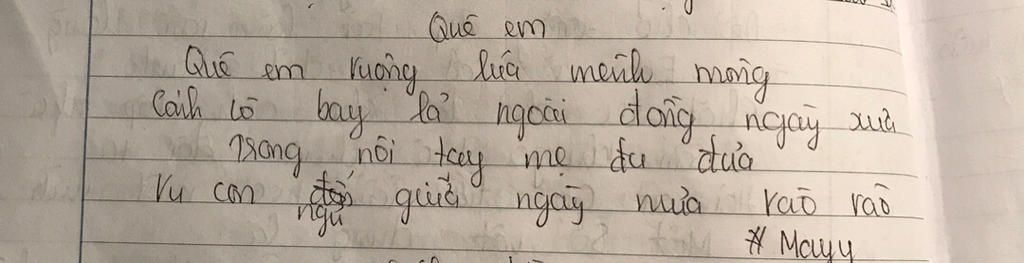 Quê em
Quê em ruộng lúa mênh mông
Cánh cò bay lả ngoài đồng ngày xưa
Trong nôi tay mẹ đu đưa
Ru con ngủ giữa ngày mưa rào rào
# Mayy